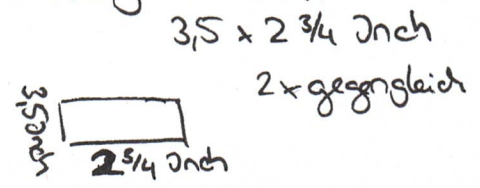 3,5 x 2 3/4 Inch
2x gegengleich
3,5 Inch
2 3/4 Inch